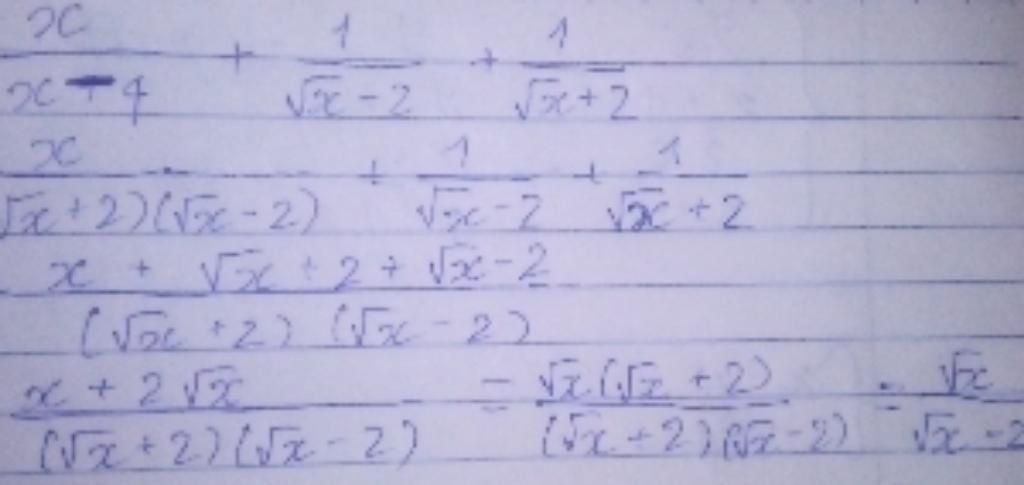 x/(x - 4) + 1/(√x - 2) + 1/(√x + 2)
x/((√x + 2)(√x - 2)) + 1/(√x - 2) + 1/(√x + 2)
(x + √x + 2 + √x - 2)/((√x + 2)(√x - 2))
(x + 2√x)/((√x + 2)(√x - 2)) = (√x(√x + 2))/((√x + 2)(√x - 2)) = √x/(√x - 2)